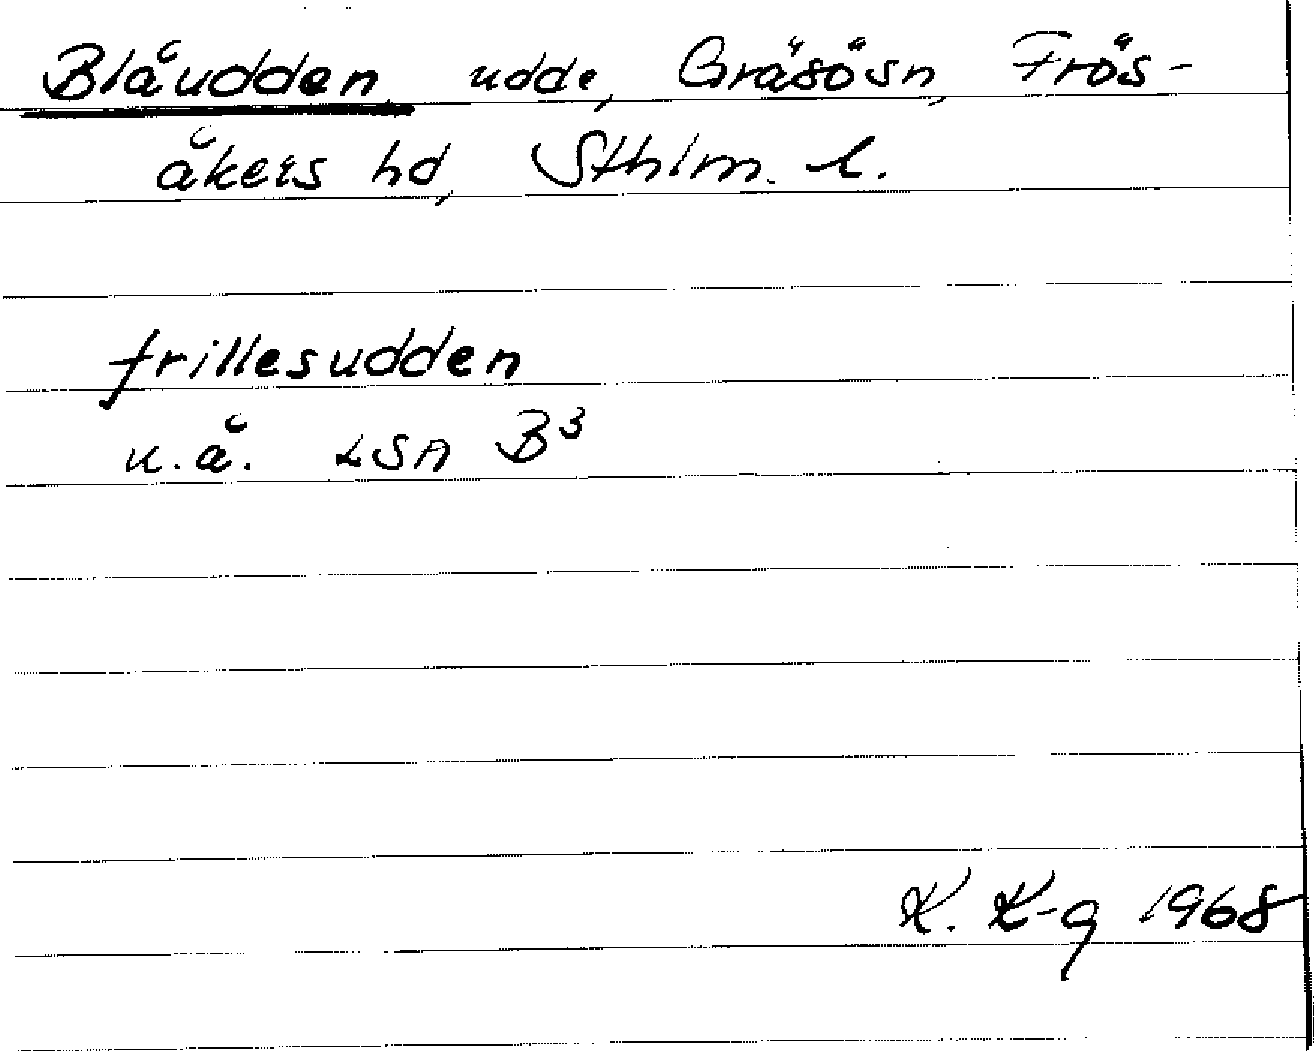 Blåudden, udde, Gräsösn, Frös-
åkers hd, Sthlm. l.
frillesudden
u.å. LSA B³
K. K-g 1968